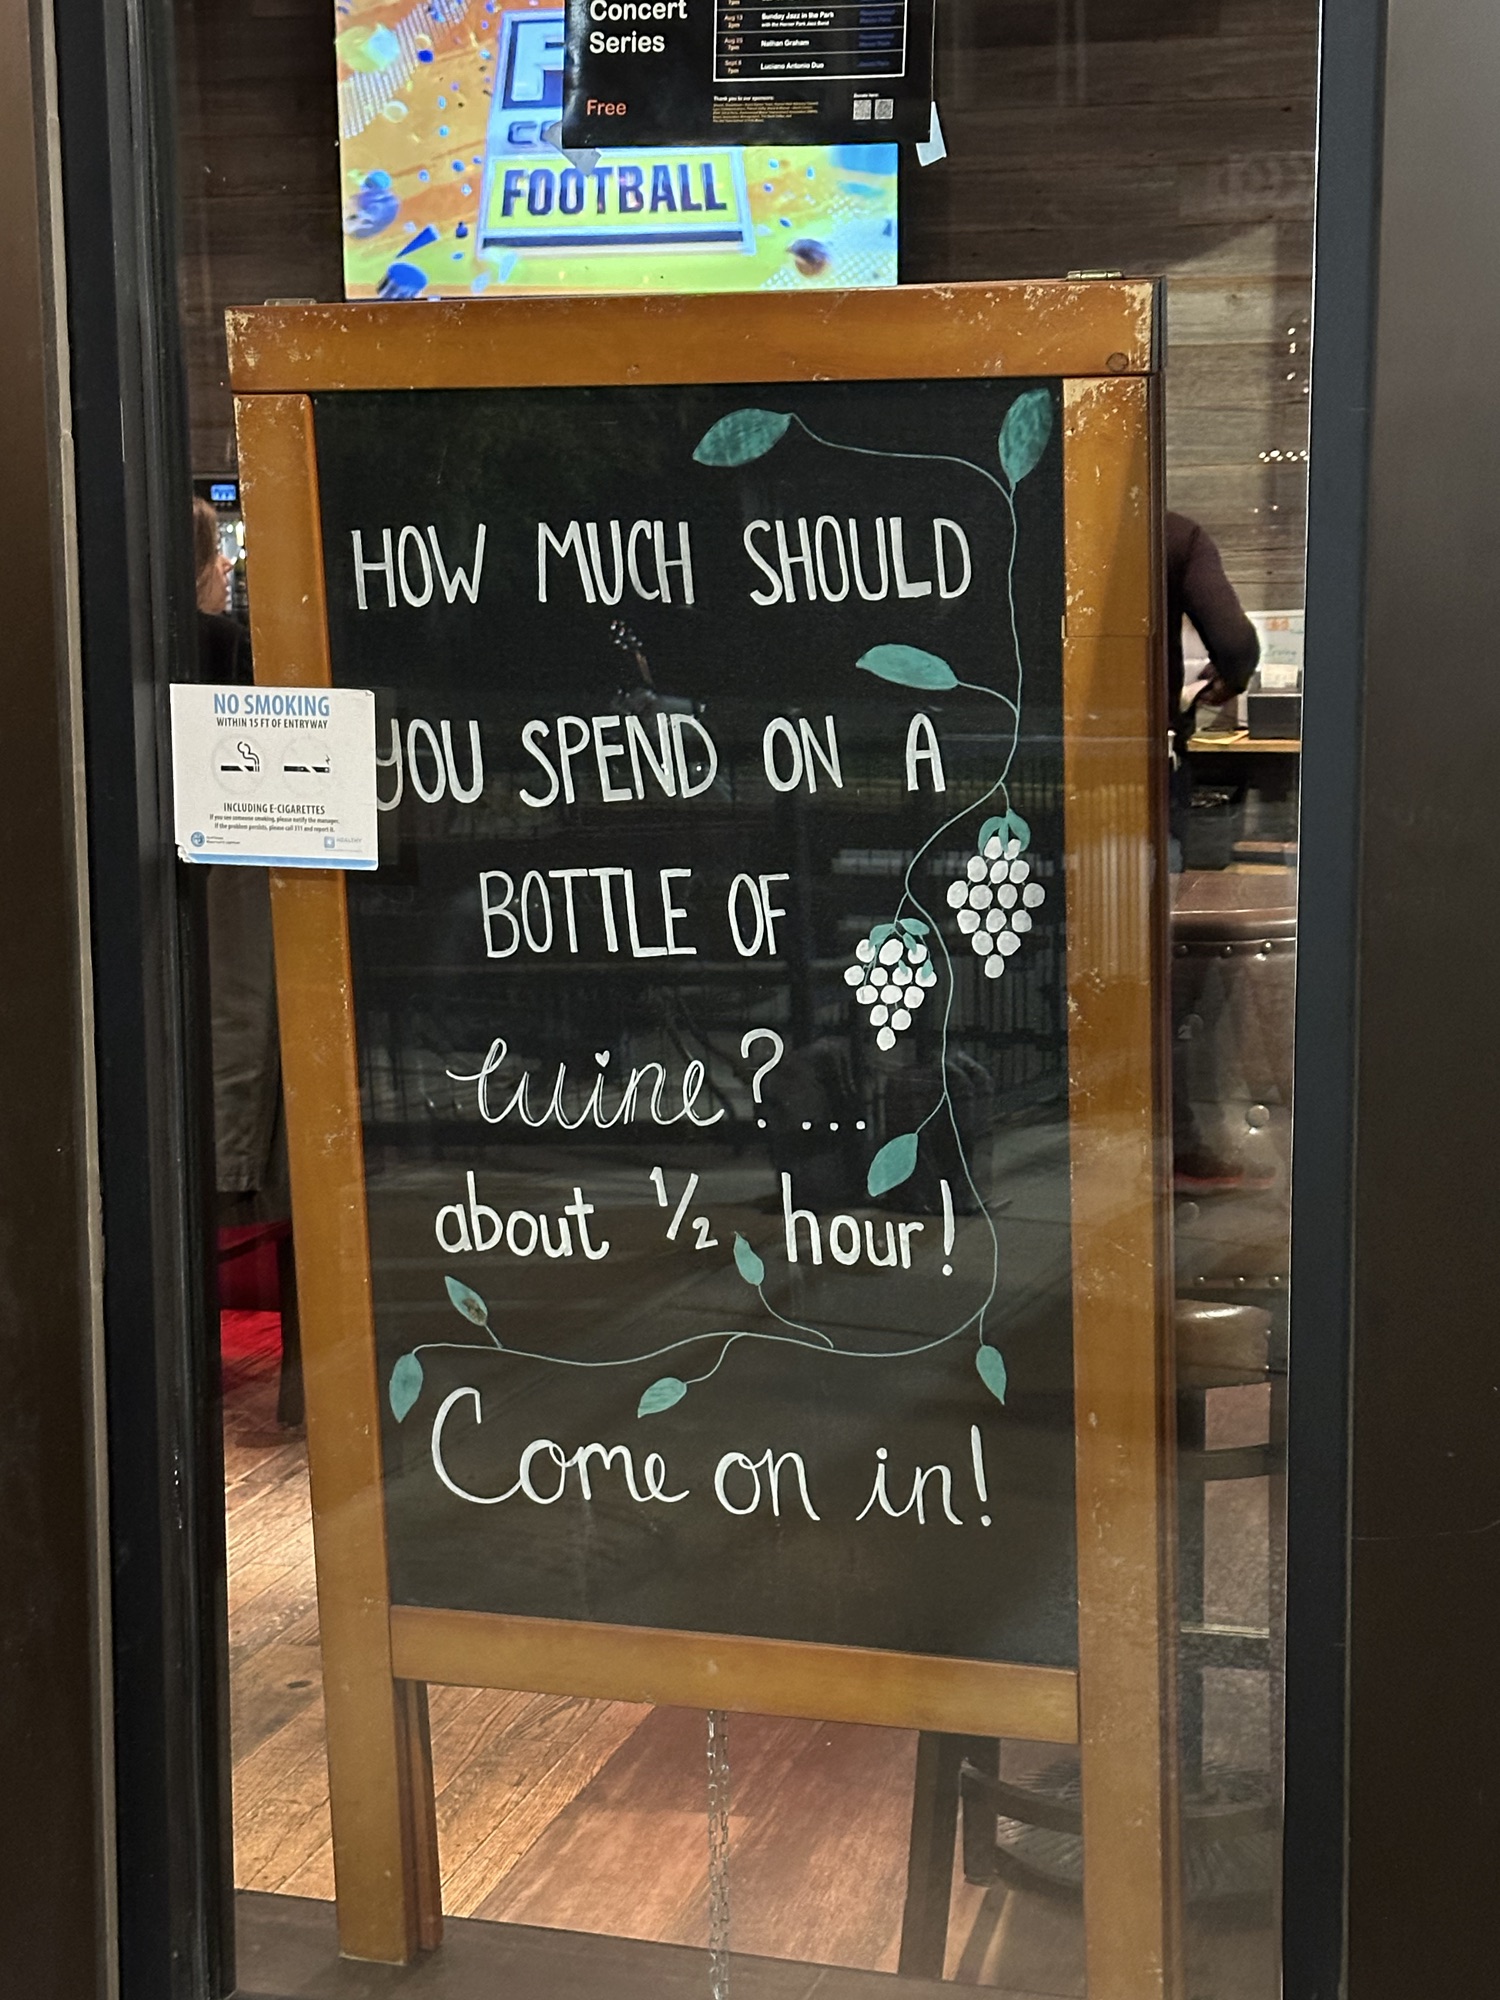 Concert
Series
Free
Aug 13
2pm
Sunday Jazz in the Park
with the Horner Park Jazz Band
Aug 25
7pm
Nathan Graham
Sept 8
7pm
Luciano Antonio Duo
Thank you to our sponsors:
Donate here:
FOOTBALL
HOW MUCH SHOULD
YOU SPEND ON A
BOTTLE OF
wine?...
about 1/2 hour!
Come on in!
NO SMOKING
WITHIN 15 FT OF ENTRYWAY
INCLUDING E-CIGARETTES
If you see someone smoking, please notify the manager.
If the problem persists, please call 311 and report it.
HEALTHY